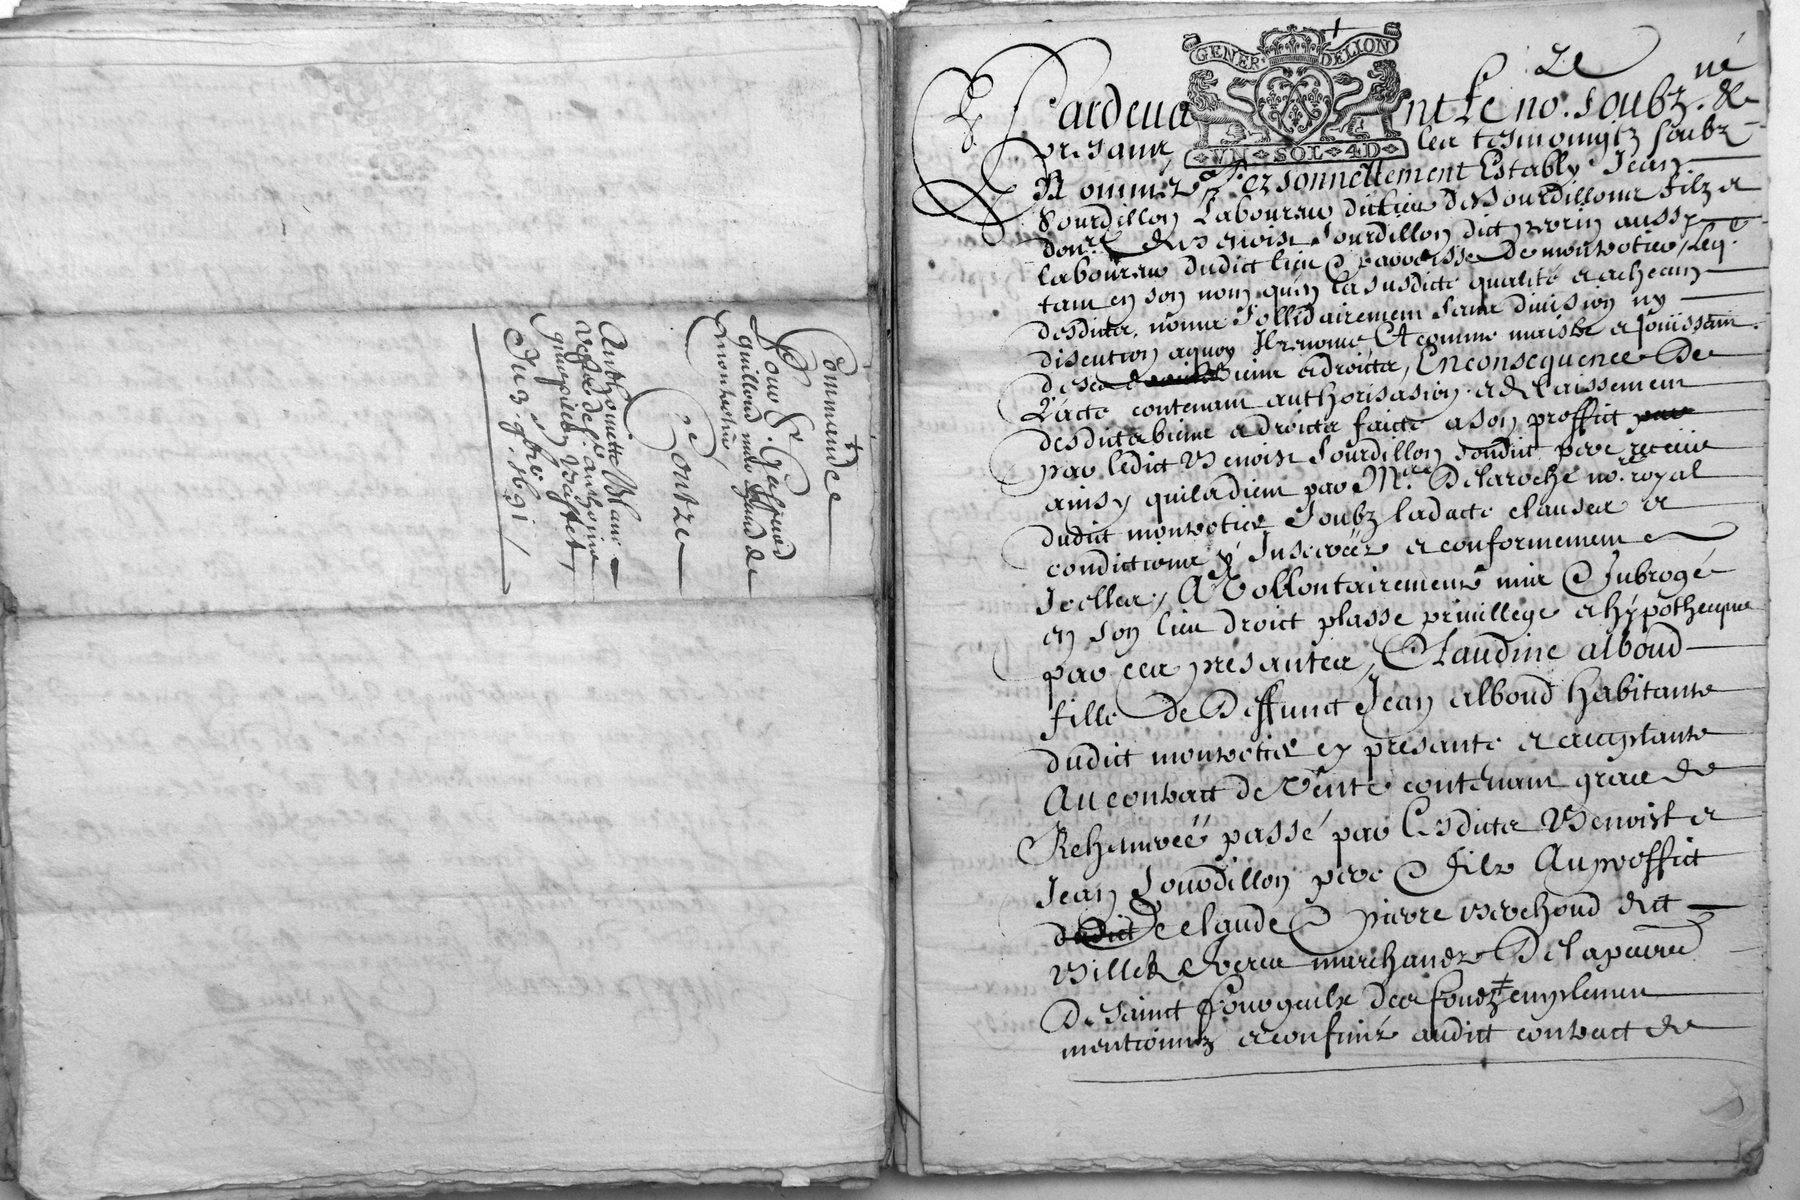 Commandee
Pour Sr. Gaspard
quilloud md
montrotier,
Contre
Anthoinette Blanc
vefve de fs anthoine
Du 3. 9bre 1691
GENER. DELION
VN SOL 4D
Pardevant Le no. soubz.né &
presant les tesmoingtz soubz
Nommez Personnellement Estably Jean
Sourdillon Laboureur dudict lieu de Sourdillonn filz et
donre de Benoist Sourdillon dict perrin aussy
laboureur dudict lieu parroisse de montrotier, Leql.
tant en son nom qu'en la susdicte qualité et a chacun
desdits. noms sollidairement sans division ny
discution a quoy Il renonce Et comme maistre et jouissant
de ses biens et droicts, En consequence de
L'acte contenant authorisasion et delaissement
desdits biens et droicts faicte a son proffict
par ledict Benoist Sourdillon sondict pere receue
ainsy quil a dict par Mre Delaroche no. royal
dudict montrotier soubz la dacte clauses et
condictions y Inserées et conformement a
Icelles, A Vollontairement mis & subrogé
en son lieu droict plasse privillege et hypothecque
par ces presantes, Claudine alboud
fille de deffunct Jean alboud habitante
dudict montrotier cy presante et acceptante
Au contract de Vente contenant grace de
Rehemreé passé par Lesdits Benoist et
Jean Sourdillon pere & filz Au proffict
de claude & pierre Berchoud dict
Villet freres marchands De la parre
De sainct Fourgeulx des fondz emplement
mentionnez et confinez audict contract de